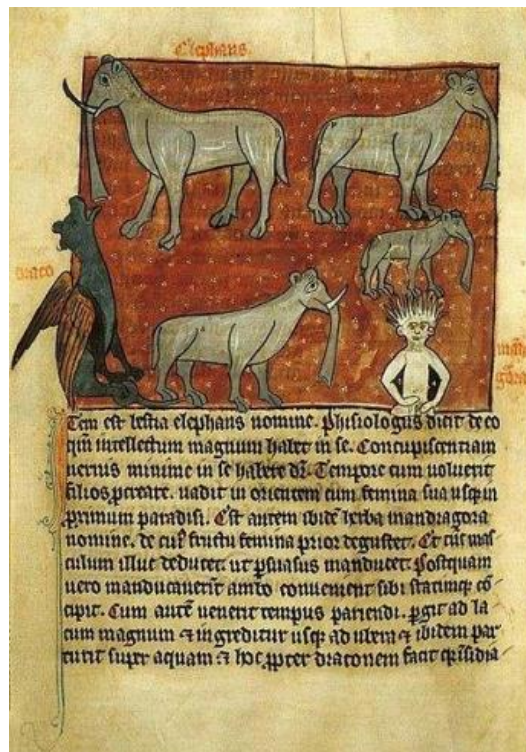 Elephans
draco
man
gora
Tem est bestia elephans nomine. Phisiologus dicit de eo
qm̄ intellectum magnum habet in se. Concupiscentiam
uerius minime in se habere dr̄. Tempore cum uoluerit
filios ꝓcreare. uadit in orientem cum femina sua usqꝫ in
ꝓximum paradisi. Est autem ibidē herba mandragora
nomine. de cuiꝰ fructu femina prior degustet. Et tūc mas
culum illuc deducet. ut ꝑsuasus manducet. Postquam
uero manducauerit ambo conuenient sibi statimqꝫ cō
cipit. Cum autē uenerit tempus pariendi. ꝑgit ad la
cum magnum ⁊ ingreditur usqꝫ ad ubera ⁊ ibidem par
turit super aquam ⁊ hoc ꝓpter draconem facit